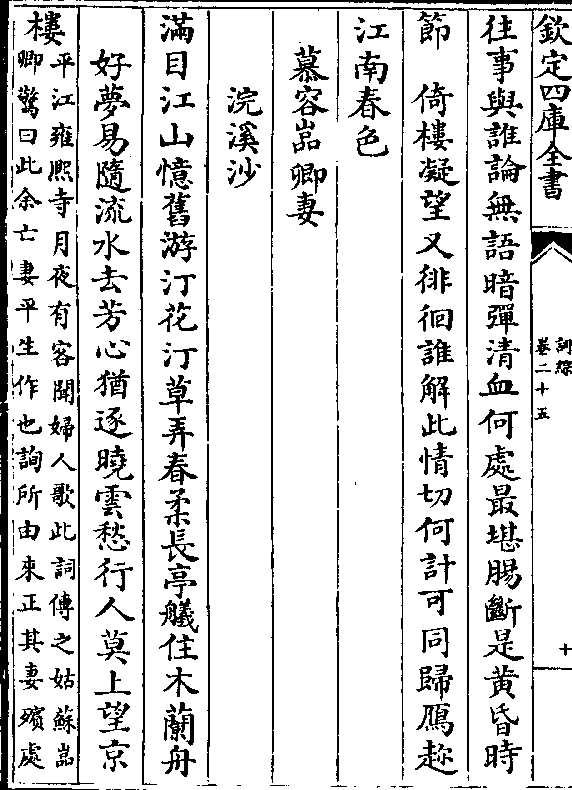 欽定四庫全書
詞綜
卷二十五
十
往事與誰論無語暗彈清血何處最堪腸斷是黄昏時
節　倚樓凝望又徘徊誰解此情切何計可同歸鴈趂
江南春色
慕容嵓卿妻
浣溪沙
滿目江山憶舊游汀花汀草弄春柔長亭艤住木蘭舟
好夢易隨流水去芳心猶逐曉雲愁行人莫上望京
樓平江雍熙寺月夜有客聞婦人歌此詞傳之姑蘇嵓
卿驚曰此余亡妻平生作也詢所由來正其妻殯處